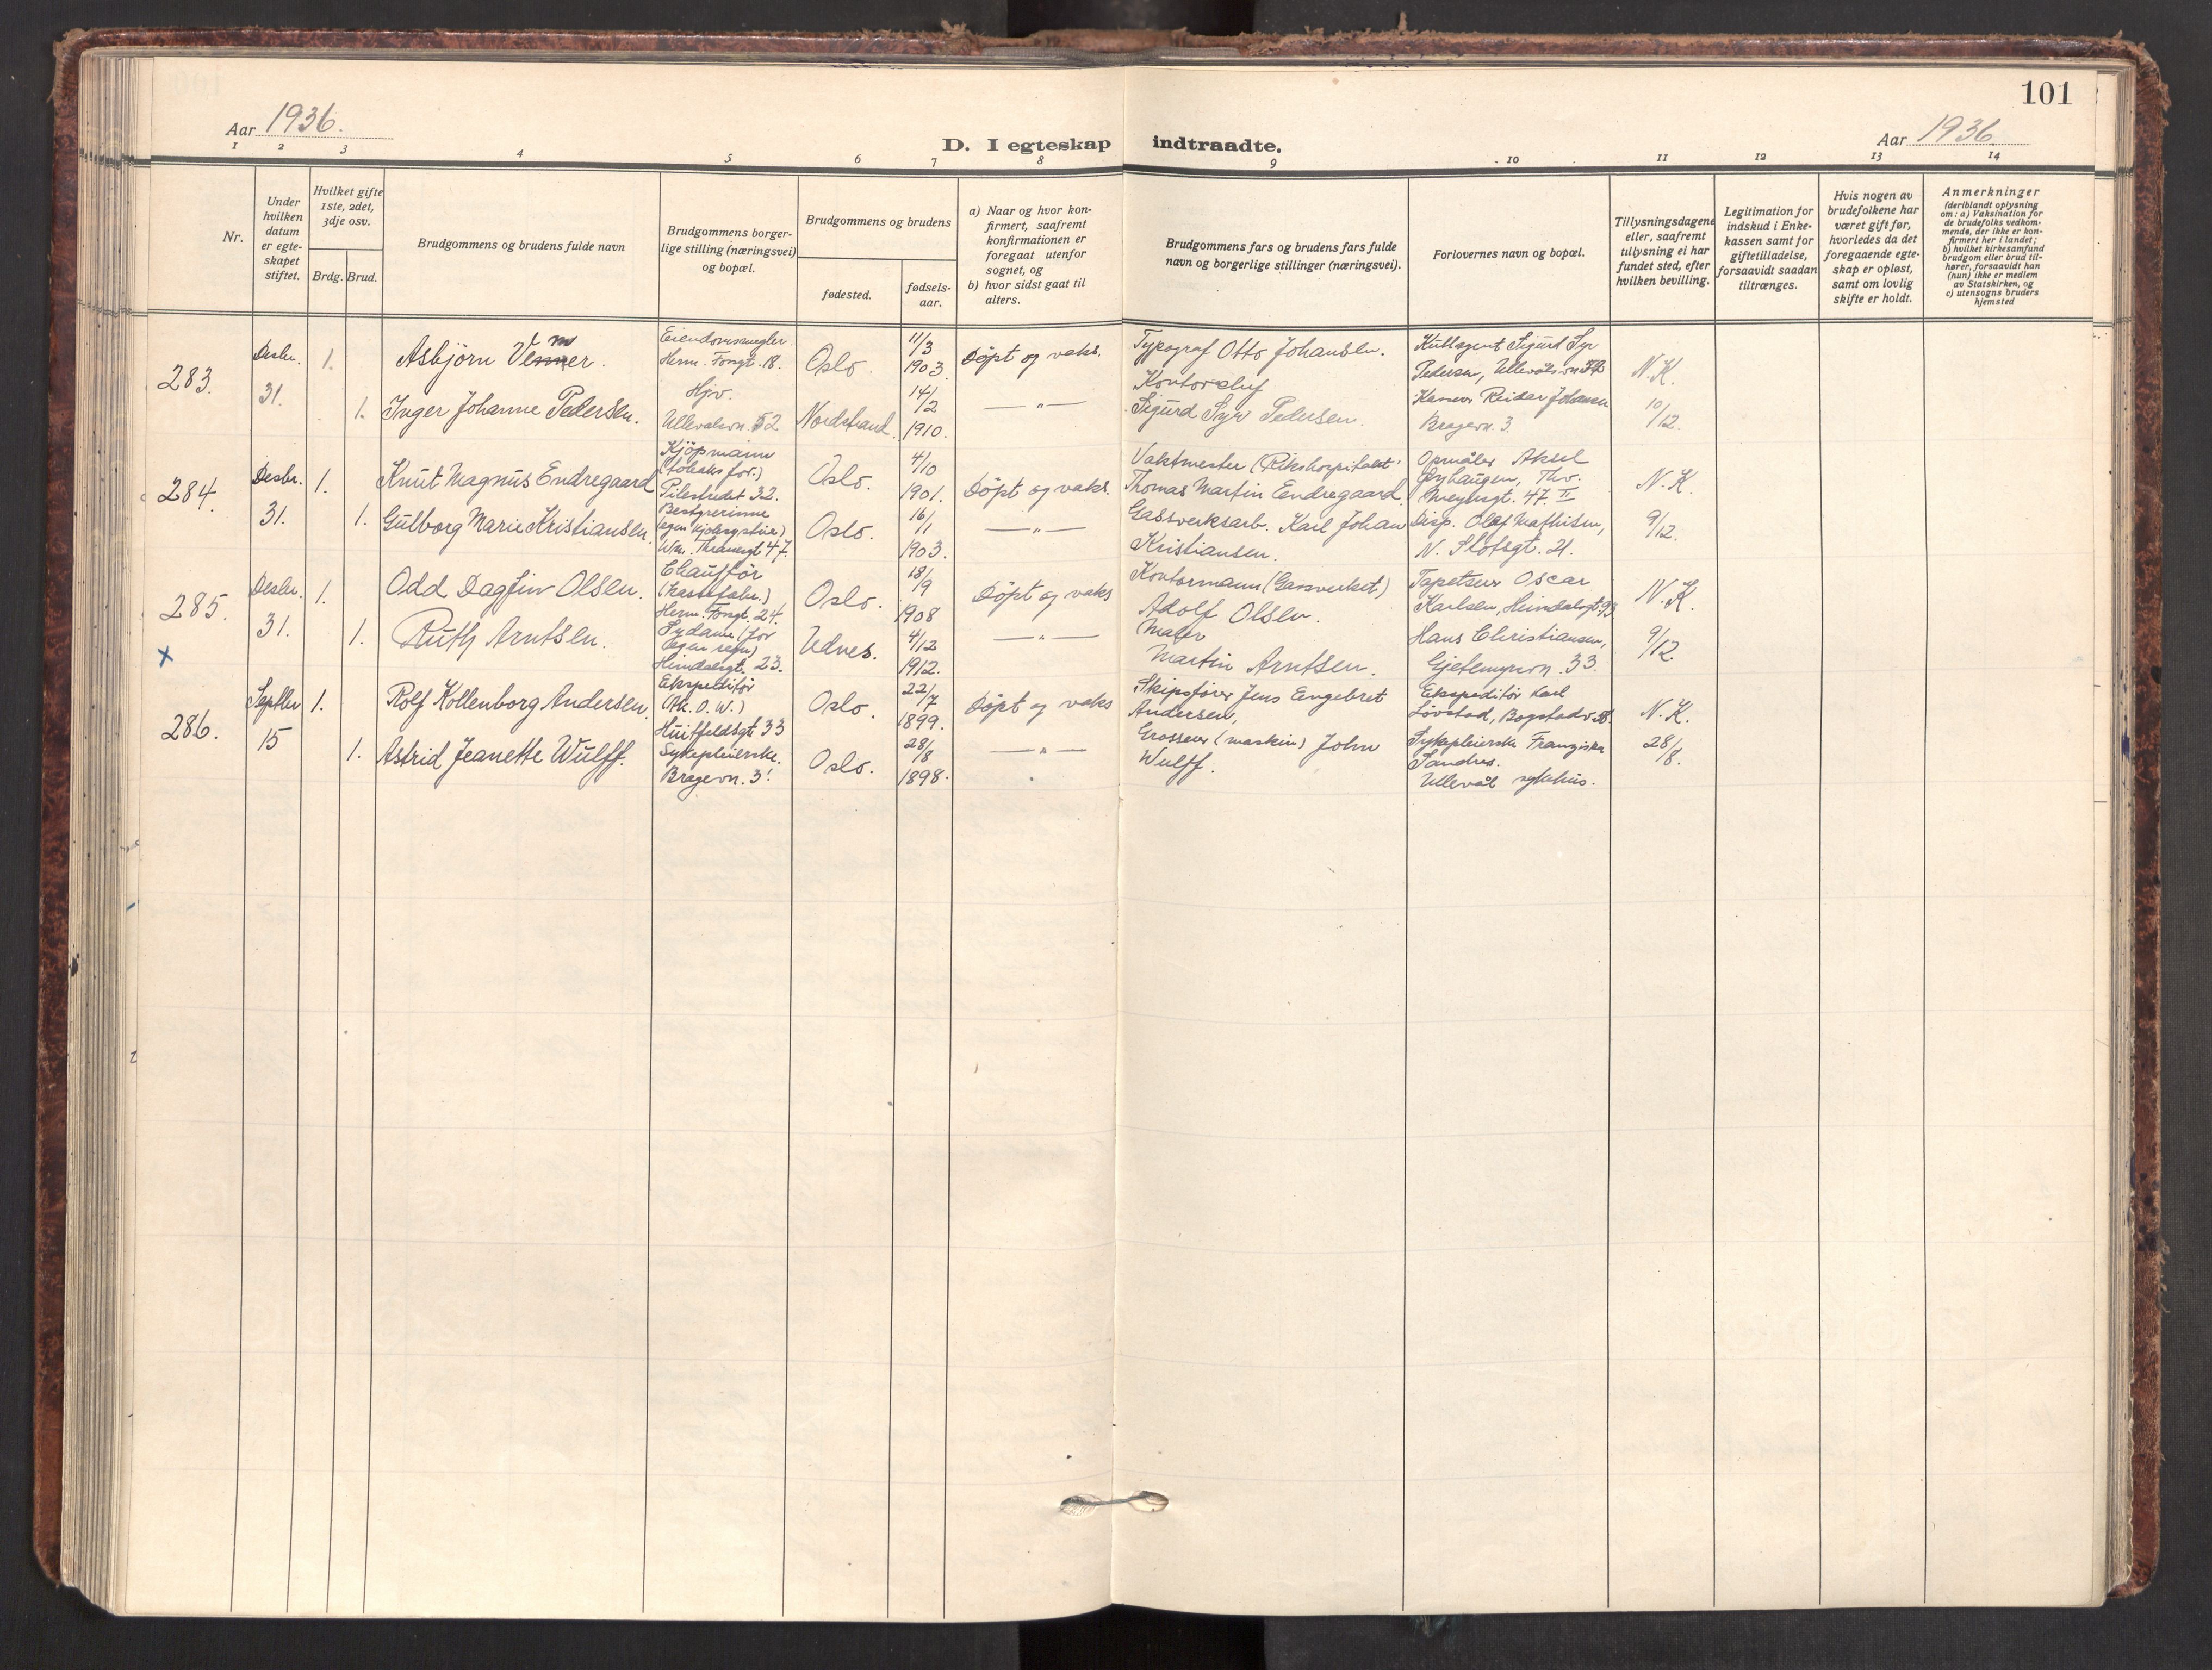 101
Aar 1936.
Aar 1936
D. I egteskap indtraadte.
1 2 3 4 5 6 7 8 9 10 11 12 13 14
Nr.
Under
hvilken
datum
er egte-
skapet
stiftet.
Hvilket gifte
1ste, 2det,
3dje osv.
Brdg. Brud.
Brudgommens og brudens fulde navn
Brudgommens borger-
lige stilling (næringsvei)
og bopæl.
Brudgommens og brudens
fødested.
fødsels-
aar.
a) Naar og hvor kon-
firmert, saafremt
konfirmationen er
foregaat utenfor
sognet, og
b) hvor sidst gaat til
alters.
Brudgommens fars og brudens fars fulde
navn og borgerlige stillinger (næringsvei).
Forlovernes navn og bopæl.
Tillysningsdagene
eller, saafremt
tillysning ei har
fundet sted, efter
hvilken bevilling.
Legitimation for
indskud i Enke-
kassen samt for
giftetilladelse,
forsaavidt saadan
tiltrænges.
Hvis nogen av
brudefolkene har
været gift før,
hvorledes da det
foregaaende egte-
skap er opløst,
samt om lovlig
skifte er holdt.
Anmerkninger
(deriblandt oplysning
om: a) Vaksination for
de brudefolks vedkom-
mende, der ikke er kon-
firmert her i landet;
b) hvilket kirkesamfund
brudgom eller brud til-
hører, forsaavidt han
(hun) ikke er medlem
av Statskirken, og
c) utensogns bruders
hjemsted
283.
Desbr.
31.
1.
Asbjörn Venner.
Eiendomsmegler
Herm. Fossgt. 18.
Oslo.
11/3
1903.
Döpt og vaks.
Typograf Otto Johansen.
Kullagent Sigurd Syr
Pedersen, Ullevålsvn 52
N.K.
1.
Inger Johanne Pedersen.
Hjv.
Ullevalsvn. 52
Nordstrand.
14/2
1910.
— „ —
Kontorchef
Sigurd Syr Pedersen.
Kasserer Reidar Johansen
Bragevn. 3.
10/12.
284.
Desbr.
31.
1.
Knut Magnus Endregaard
Kjöpmann
(tobaks for.)
Pilestredet 32.
Oslo.
4/10
1901.
Döpt og vaks.
Vaktmester (Rikshospitalet
Thomas Martin Endregaard
Opmåler Aksel
Thv.
Meyersgt. 47 II
N.K.
1.
Gulborg Marie Kristiansen.
Bestyrerinne
Thranesgt 47.
Oslo.
16/1
1903.
— „ —
Gassverksarb. Karl Johan
Kristiansen.
Disp. Olaf Mathisen,
N. Slotsgt. 21.
9/12.
285.
x
Desbr.
31.
1.
Odd Dagfin Olsen.
Chaufför
Herm. Fossgt. 24.
Oslo.
18/9
1908
Döpt og vaks
Kontormann (Gassverket)
Adolf Olsen.
Tapetserer Oscar
Karlsen, Heimdalsgt. 93
N.K.
1.
Ruth Arntsen.
Sydame (for
egen regn)
Heimdalsgt. 23.
Udnes.
4/12
1912.
— „ —
Maler
Martin Arntsen.
Hans Christiansen,
Gjetemyrsvn. 33
9/12.
286.
Septbr
15
1.
Rolf Kollenborg Andersen.
Ekspeditör
Huitfeldsgt 33
Oslo.
22/7
1899.
Döpt og vaks
Skipsförer Jens Engebret
Andersen,
Ekspeditör Karl
Lövstad, Bogstadv.
N.K.
1.
Astrid Jeanette Wulff.
Sykepleierske.
Bragevn. 3.
Oslo.
28/8
1898.
— „ —
Grosserer (maskin) John
Wulff.
Sykepleierske Franziska
Sandres.
Ullevål sykehus.
28/8.